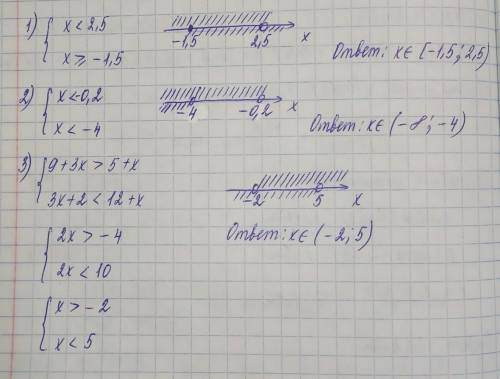 1) { x < 2,5
x ⩾ -1,5
-1,5 2,5 x
Ответ: x ∈ [-1,5; 2,5)
2) { x < -0,2
x < -4
-4 -0,2 x
Ответ: x ∈ (-∞; -4)
3) { 9 + 3x > 5 + x
3x + 2 < 12 + x
-2 5 x
Ответ: x ∈ (-2; 5)
{ 2x > -4
2x < 10
{ x > -2
x < 5